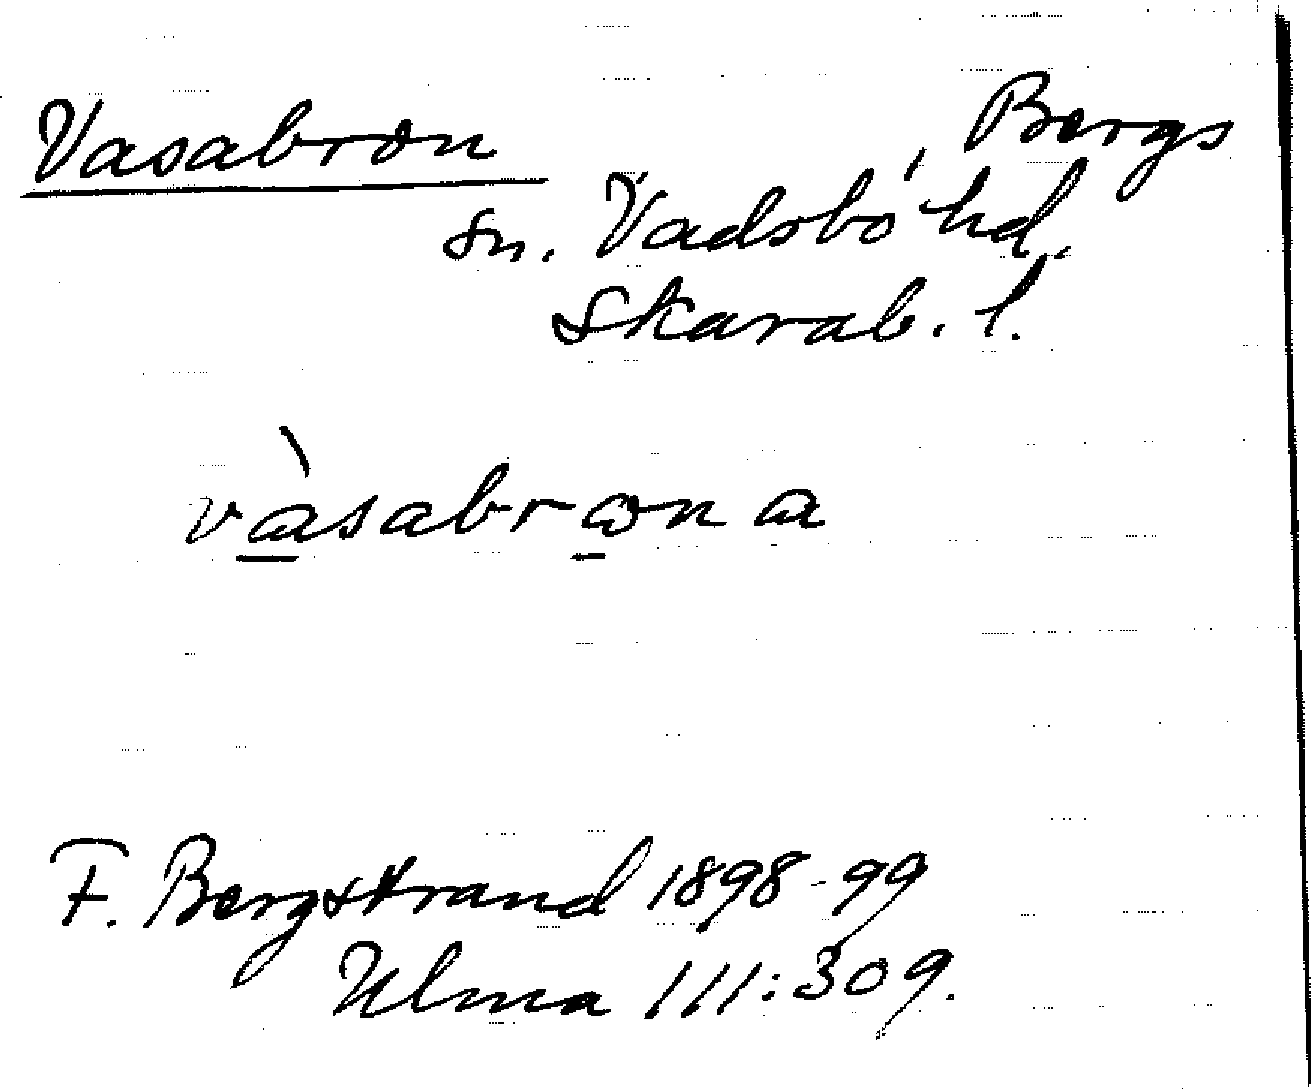 Vasabron
, Bergs
sn. Vadsbo hd,
Skarab. l.
vàsabrωn a
F. Bergstrand 1898-99
Ulma 111:309.